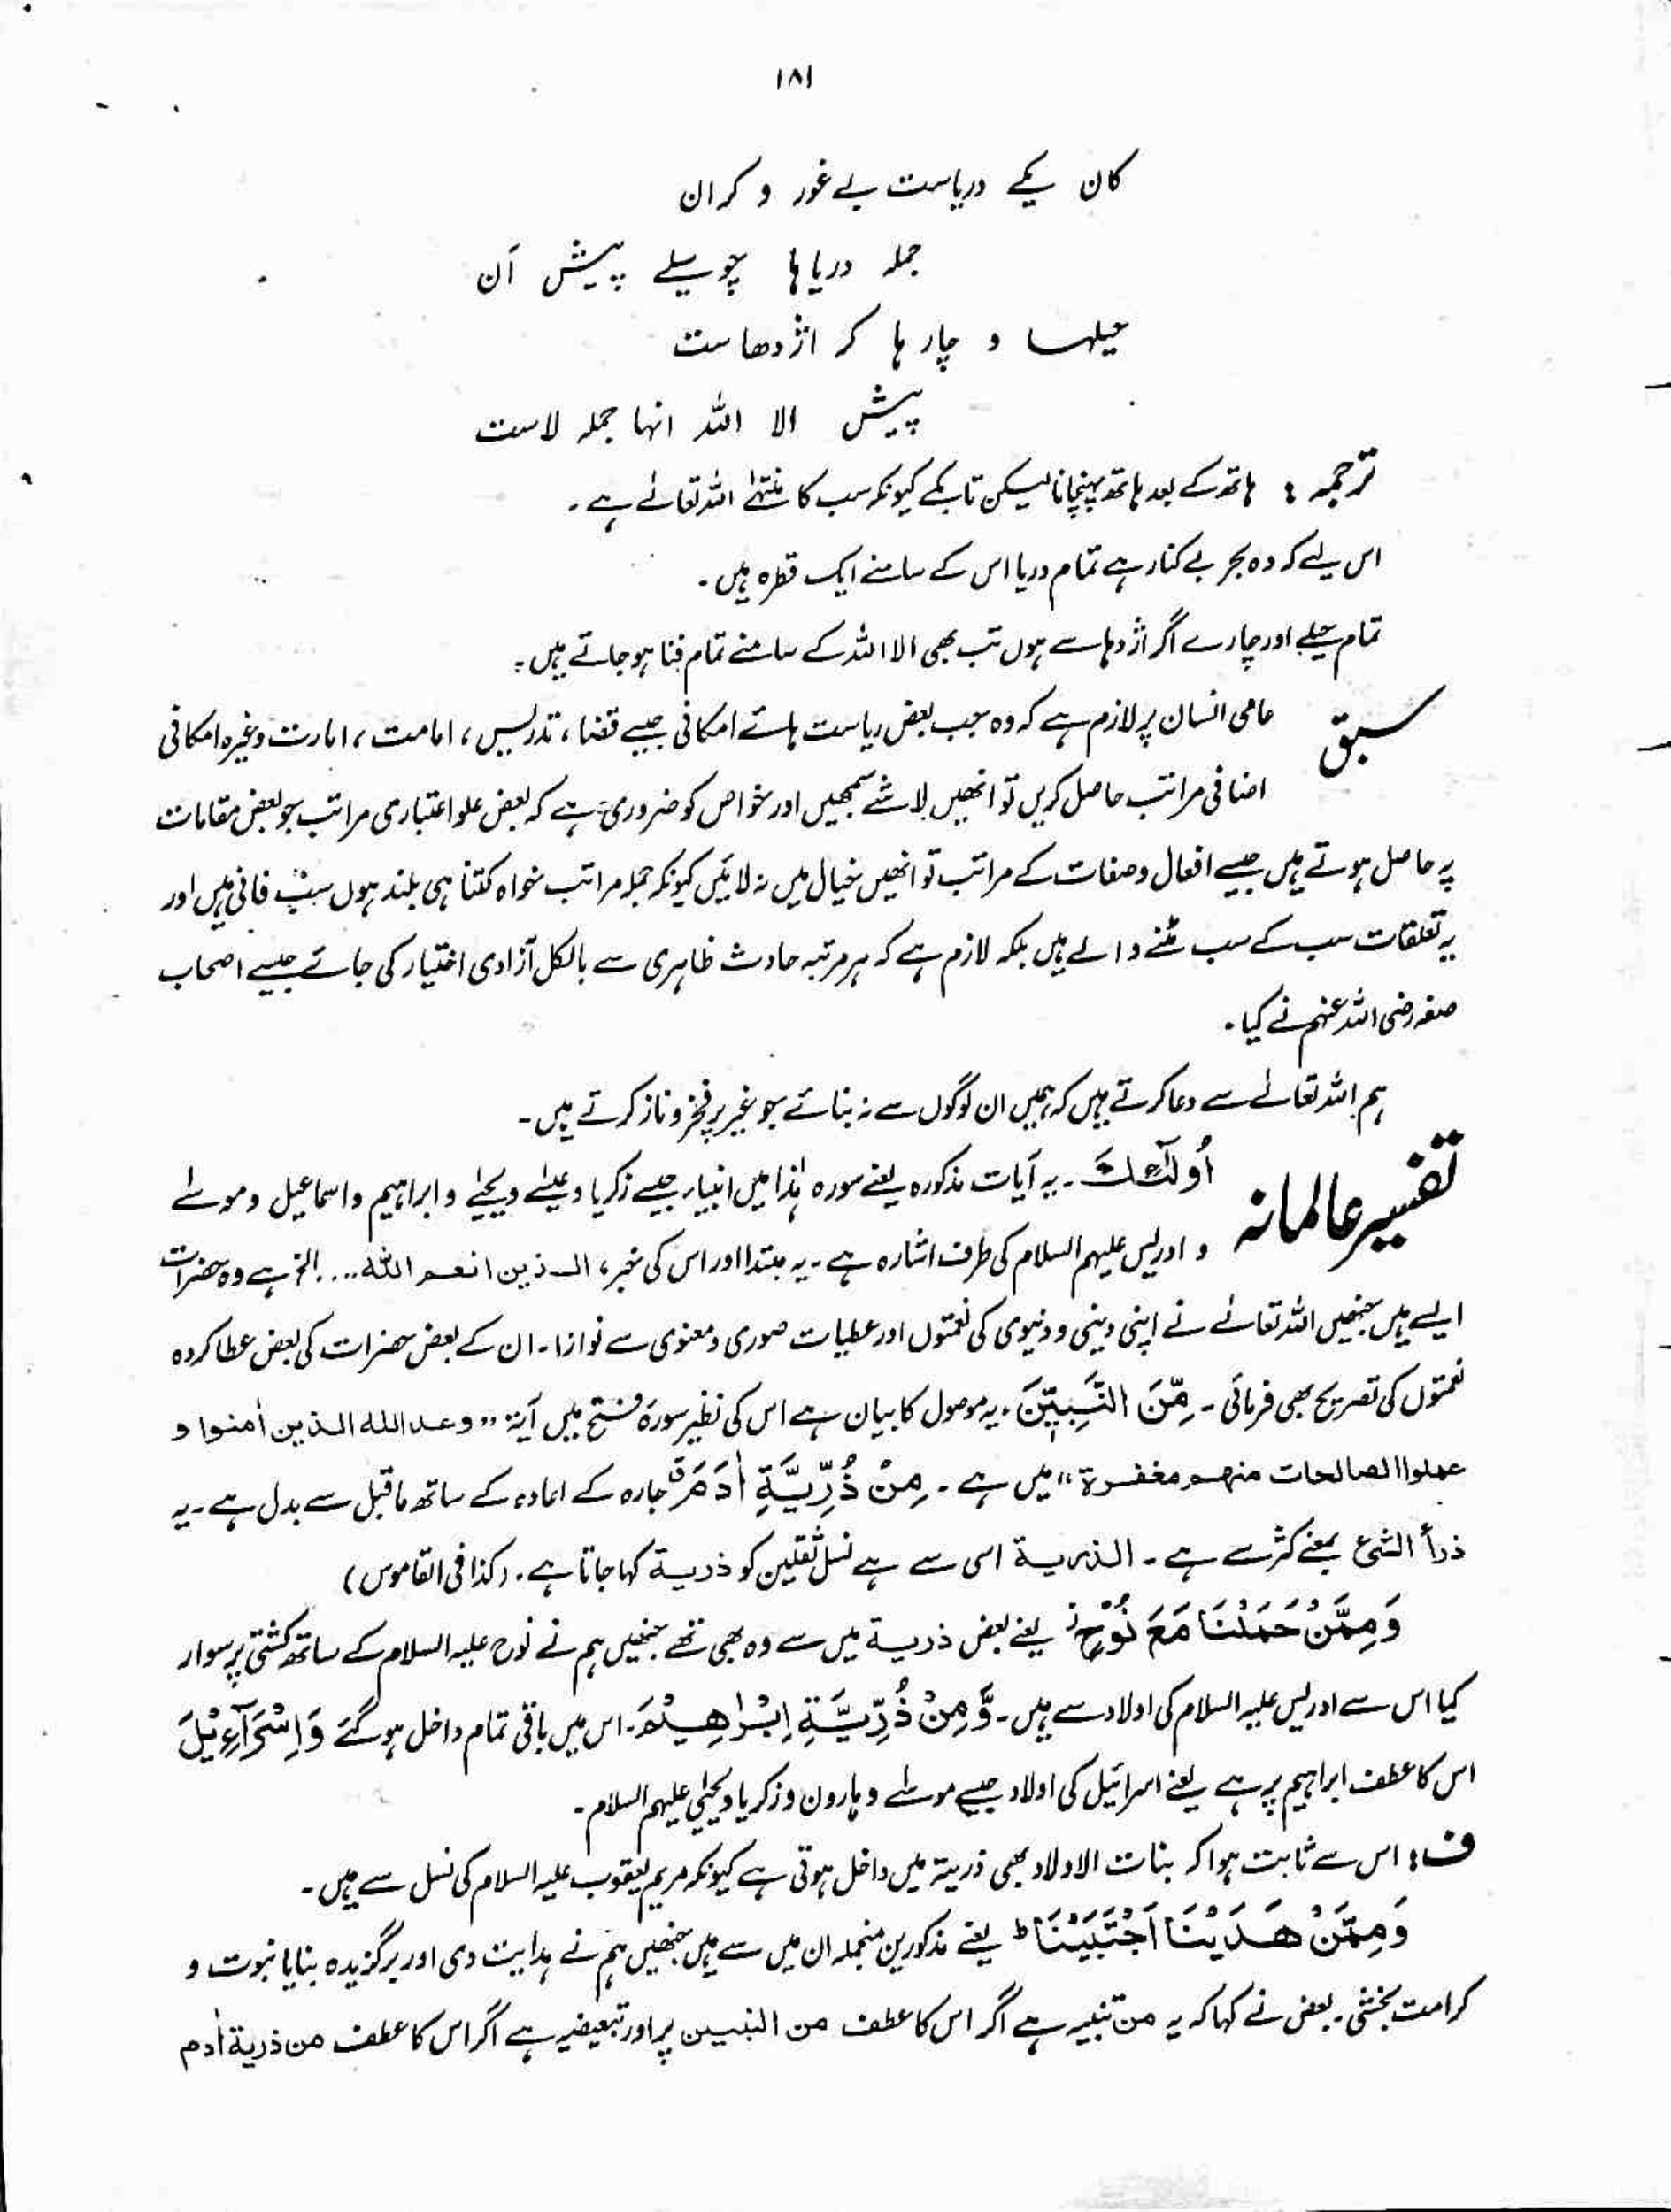 ۱۸۱
کان یکے دریاست بے غور و کران
جملہ دریاہا چو سیلے پیش آن
حیلہا و چارہا کہ اژدھاست
پیش الا اللہ انہا جملہ لاست
ترجمہ : ہاتھ کے بعد ہاتھ پہنچانا لیکن تابکے کیونکہ سب کا منتہٰی اللہ تعالےٰ ہے ۔
اس لیے کہ وہ بحر بے کنار ہے تمام دریا اس کے سامنے ایک قطرہ ہیں ۔
تمام حیلے اور چارے اگر اژدہا سے ہوں تب بھی الا اللہ کے سامنے تمام فنا ہو جاتے ہیں ۔
سبق عامی انسان پر لازم ہے کہ وہ جب بعض ریاست ہائے امکانی جیسے قضا ، تدریس ، امامت ، امارت وغیرہ امکانی
اضافی مراتب حاصل کریں تو انھیں لاشے سمجھیں اور خواص کو ضروری ہے کہ بعض علو اعتباری مراتب جو بعض مقامات
پر حاصل ہوتے ہیں جیسے افعال و صفات کے مراتب تو انھیں خیال میں نہ لائیں کیونکہ جملہ مراتب خواہ کتنا ہی بلند ہوں سب فانی ہیں اور
یہ تعلقات سب کے سب مٹنے والے ہیں بلکہ لازم ہے کہ ہر مرتبہ حادث ظاہری سے بالکل آزادی اختیار کی جائے جیسے اصحاب
صفہ رضی اللہ عنہم نے کیا ۔
ہم اللہ تعالےٰ سے دعا کرتے ہیں کہ ہمیں ان لوگوں سے نہ بنائے جو غیر پر فخر و ناز کرتے ہیں ۔
تفسیر عالمانہ اُولٰٓئِكَ ۔ یہ آیات مذکورہ یعنے سورہ ہٰذا میں انبیاء جیسے زکریا و عیسےٰ و یحیےٰ و ابراہیم و اسماعیل و موسےٰ
و ادریس علیہم السلام کی طرف اشارہ ہے ۔ یہ مبتدا اور اس کی خبر ، الذین انعم اللہ .... الخ ہے وہ حضرات
ایسے ہیں جنھیں اللہ تعالےٰ نے اپنی دینی و دنیوی کی نعمتوں اور عطیات صوری و معنوی سے نوازا ۔ ان کے بعض حضرات کی بعض عطا کردہ
نعمتوں کی تصریح بھی فرمائی ۔ مِّنَ النَّبِیّٖنَ ، یہ موصول کا بیان ہے اس کی نظیر سورۂ فتح میں آیۃ " وعد اللہ الذین اٰمنوا و
عملوا الصالحات منہم مغفرۃ " میں ہے ۔ مِنْ ذُرِّیَّةِ اٰدَمَ ق جارہ کے اعادہ کے ساتھ ماقبل سے بدل ہے ۔ یہ
ذرأ الشئ بمعنے کثر سے ہے ۔ الذریۃ اسی سے ہے نسل ثقلین کو ذریۃ کہا جاتا ہے ۔ ( کذا فی القاموس )
وَمِمَّنْ حَمَلْنَا مَعَ نُوْحٍ ز یعنے بعض ذریۃ میں سے وہ بھی تھے جنھیں ہم نے نوح علیہ السلام کے ساتھ کشتی پر سوار
کیا اس سے ادریس علیہ السلام کی اولاد سے ہیں ۔ وَّمِنْ ذُرِّیَّةِ اِبْرٰھِیْمَ ۔ اس میں باقی تمام داخل ہو گئے وَاِسْرَآءِیْلَ
اس کا عطف ابراہیم پر ہے یعنے اسرائیل کی اولاد جیسے موسےٰ و ہارون و زکریا و یحیٰی علیہم السلام ۔
ف : اس سے ثابت ہوا کہ بنات الاولاد بھی ذریۃ میں داخل ہوتی ہے کیونکہ مریم یعقوب علیہ السلام کی نسل سے ہیں ۔
وَمِمَّنْ ھَدَیْنَا اجْتَبَیْنَا ط یعنے مذکورین منجملہ ان میں سے ہیں جنھیں ہم نے ہدایت دی اور برگزیدہ بنایا نبوت و
کرامت بخشی ۔ بعض نے کہا کہ یہ من تنبیہ ہے اگر اس کا عطف من النبیین پر اور تبعیضیہ ہے اگر اس کا عطف من ذریۃ اٰدم